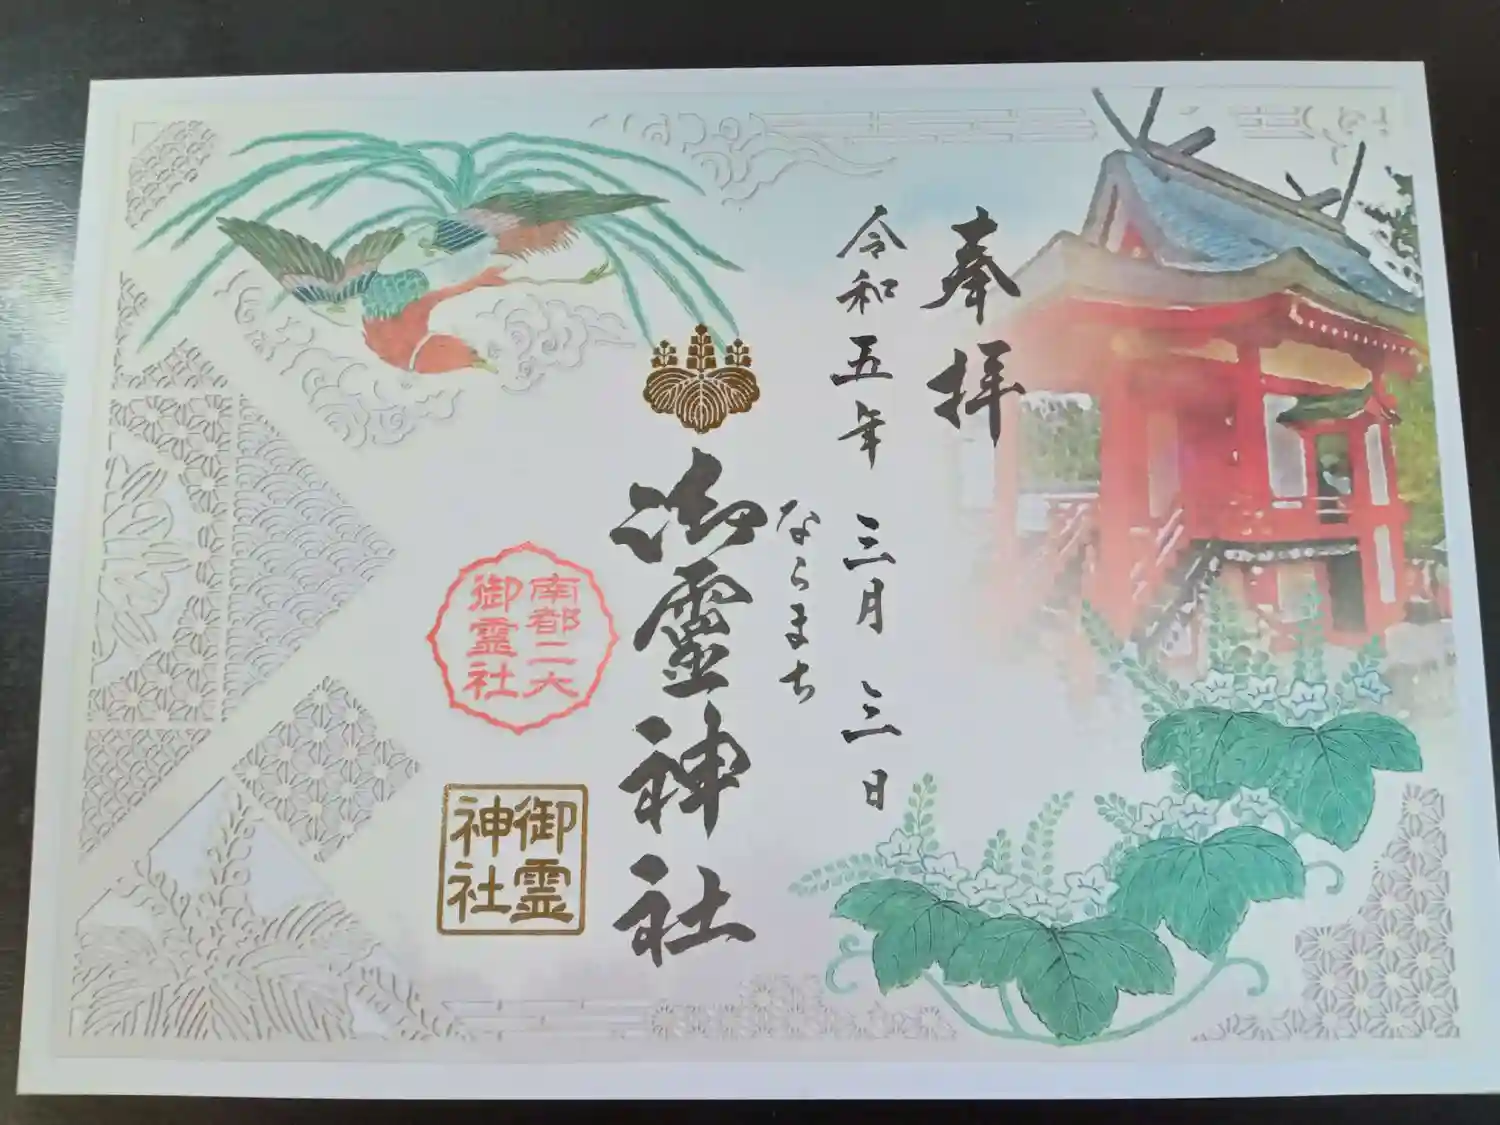 奉拝
令和五年 三月 三日
ならまち
御霊神社
南都二大
御霊社
御霊
神社